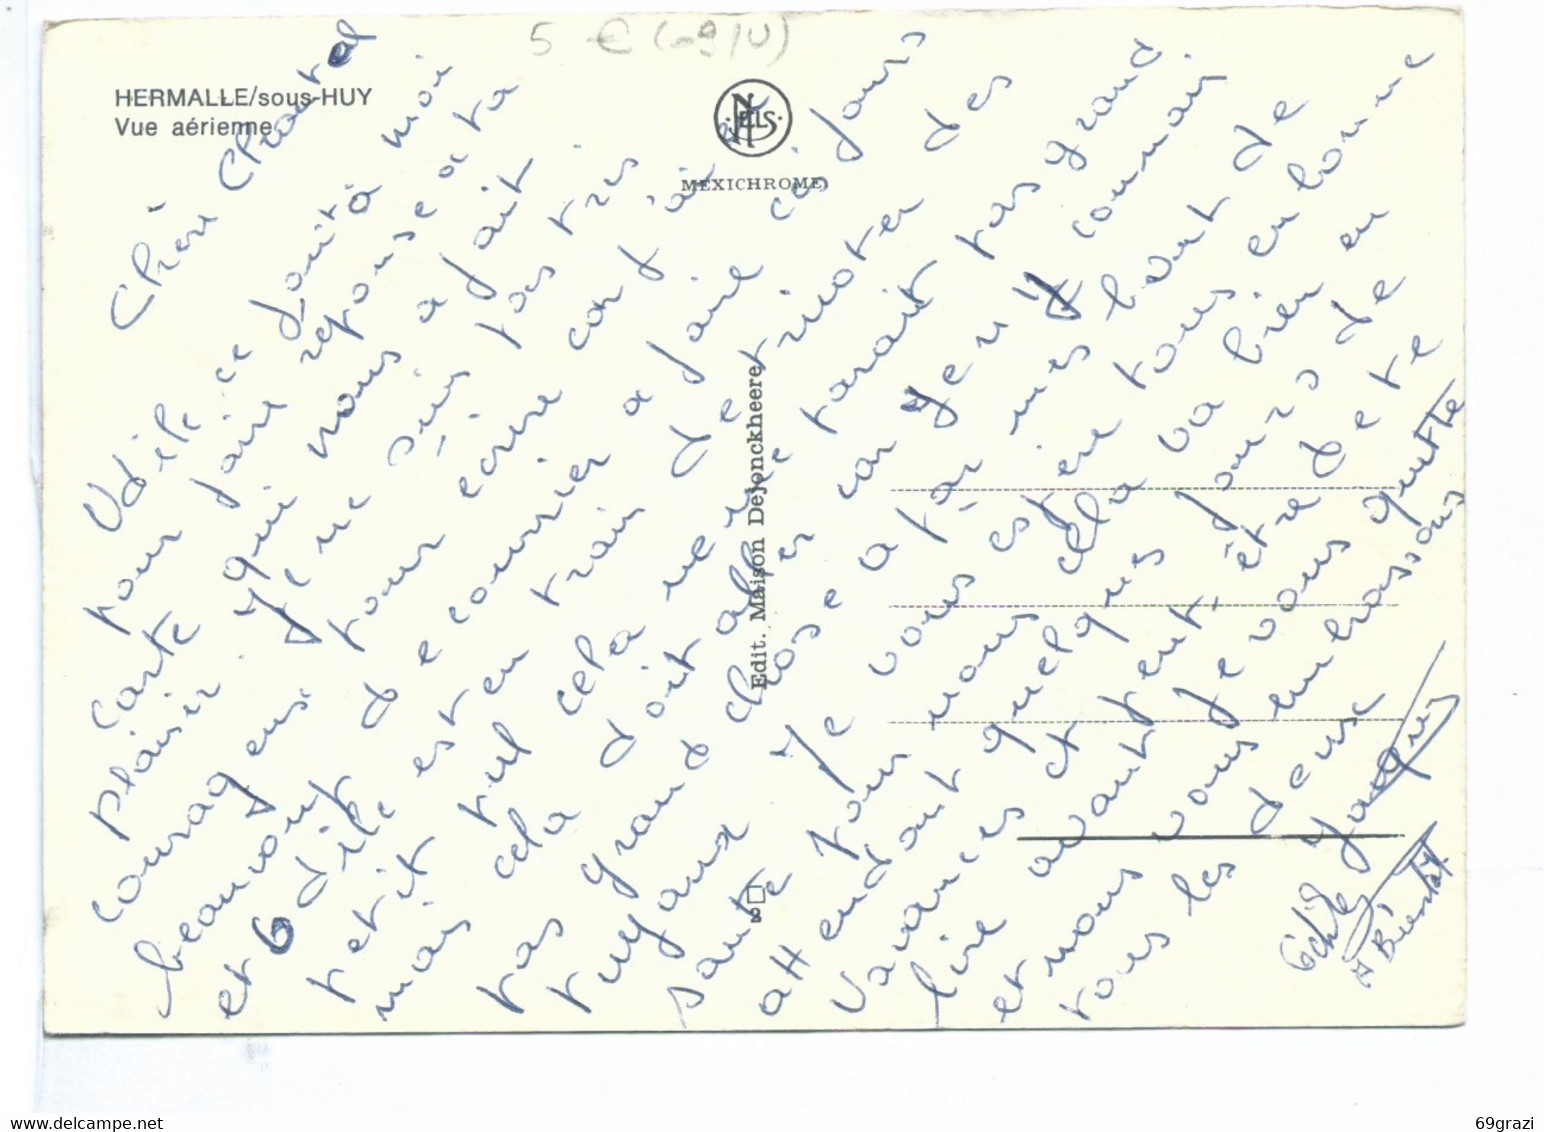 5 € (-9/U)
HERMALLE/sous-HUY
Vue aérienne
NELS
MEXICHROME
Edit. Maison Dejonckheere
Chère Chantal
Odile ce joint à moi
pour faire reponse a ta
carte qui nous a fait
plaisir. Je ne suis pas très
courageuse pour ecrire car j'ai
beaucoup de courrier a faire ces jours
et Odile est en train de tricoter des
petit pul cela ne me parait pas grand
mais cela doit aller car je n'y connais
pas grand chose a par mes bout de
tuyaux Je vous espère tous en bonne
santé pour nous cela va bien en
attendant quelques jours de
vacances et peut-être de te
lire avant Je vous quitte
et nous vous embrassons
tous les deux
Odile Jacques
A Bientôt
69grazi